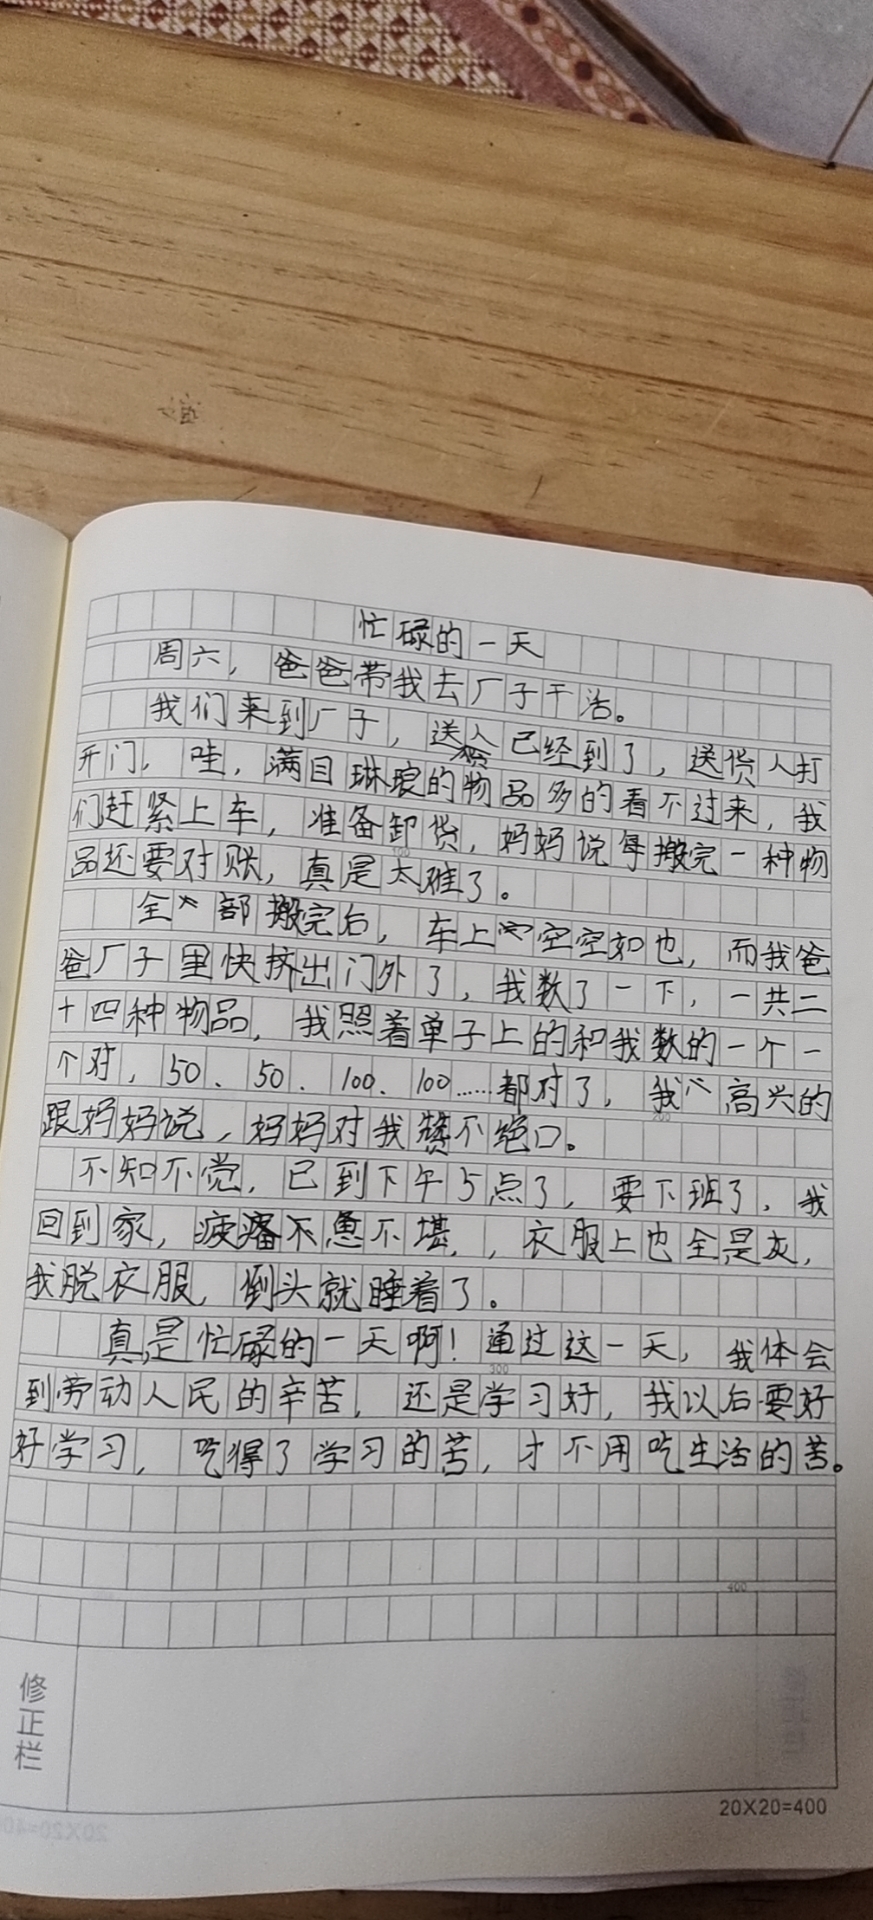 忙碌的一天
周六，爸爸带我去厂子干活。
我们来到厂子，送货人已经到了，送货人打
开门，哇，满目琳琅的物品多的看不过来，我
们赶紧上车，准备卸货，妈妈说每搬完一种物
品还要对账，真是太难了。
全部搬完后，车上空空如也，而我爸
爸厂子里快挤出门外了，我数了一下，一共二
十四种物品，我照着单子上的和我数的一个一
个对，50、50、100、100……都对了，我高兴的
跟妈妈说，妈妈对我赞不绝口。
不知不觉，已到下午5点了，要下班了，我
回到家，疲惫不堪，，衣服上也全是灰，
我脱衣服，倒头就睡着了。
真是忙碌的一天啊！通过这一天，我体会
到劳动人民的辛苦，还是学习好，我以后要好
好学习，吃得了学习的苦，才不用吃生活的苦。
100
200
300
400
修正栏
20X20=400